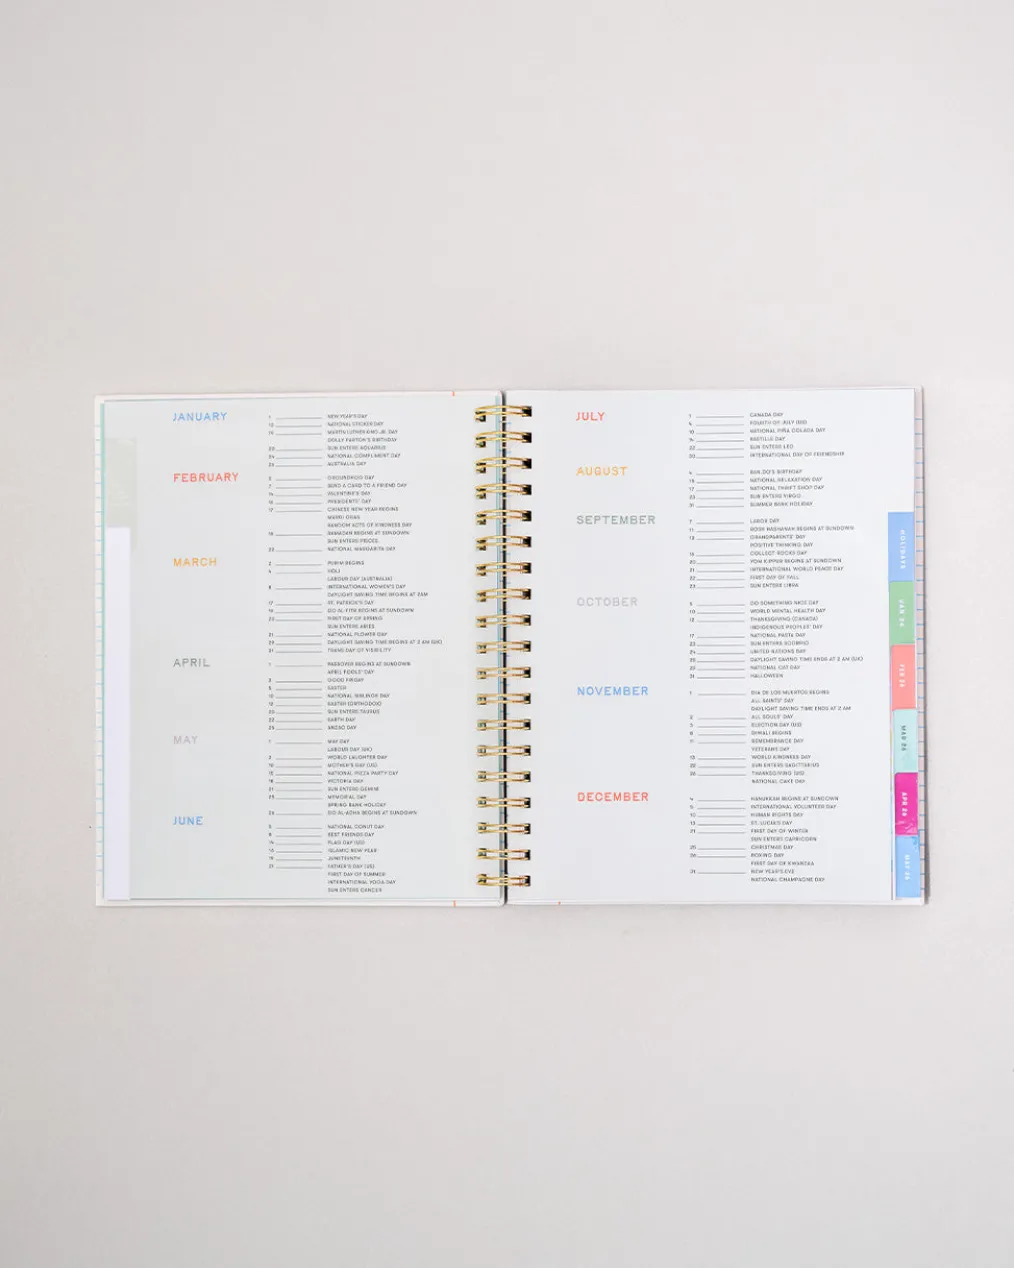 JANUARY
1 NEW YEAR'S DAY
13 NATIONAL STICKER DAY
19 MARTIN LUTHER KING JR. DAY
DOLLY PARTON'S BIRTHDAY
20 SUN ENTERS AQUARIUS
24 NATIONAL COMPLIMENT DAY
26 AUSTRALIA DAY
FEBRUARY
2 GROUNDHOG DAY
7 SEND A CARD TO A FRIEND DAY
14 VALENTINE'S DAY
16 PRESIDENTS' DAY
17 CHINESE NEW YEAR BEGINS
MARDI GRAS
RANDOM ACTS OF KINDNESS DAY
18 RAMADAN BEGINS AT SUNDOWN
SUN ENTERS PISCES
22 NATIONAL MARGARITA DAY
MARCH
2 PURIM BEGINS
4 HOLI
LABOUR DAY (AUSTRALIA)
8 INTERNATIONAL WOMEN'S DAY
DAYLIGHT SAVING TIME BEGINS AT 2AM
17 ST. PATRICK'S DAY
19 EID AL-FITR BEGINS AT SUNDOWN
20 FIRST DAY OF SPRING
SUN ENTERS ARIES
21 NATIONAL FLOWER DAY
29 DAYLIGHT SAVING TIME BEGINS AT 2 AM (UK)
31 TRANS DAY OF VISIBILITY
APRIL
1 PASSOVER BEGINS AT SUNDOWN
APRIL FOOLS' DAY
3 GOOD FRIDAY
5 EASTER
10 NATIONAL SIBLINGS DAY
12 EASTER (ORTHODOX)
20 SUN ENTERS TAURUS
22 EARTH DAY
25 ANZAC DAY
MAY
1 MAY DAY
LABOUR DAY (UK)
3 WORLD LAUGHTER DAY
10 MOTHER'S DAY (US)
15 NATIONAL PIZZA PARTY DAY
18 VICTORIA DAY
21 SUN ENTERS GEMINI
25 MEMORIAL DAY
SPRING BANK HOLIDAY
26 EID AL-ADHA BEGINS AT SUNDOWN
JUNE
5 NATIONAL DONUT DAY
8 BEST FRIENDS DAY
14 FLAG DAY (US)
ISLAMIC NEW YEAR
19 JUNETEENTH
21 FATHER'S DAY (US)
FIRST DAY OF SUMMER
INTERNATIONAL YOGA DAY
SUN ENTERS CANCER
JULY
1 CANADA DAY
4 FOURTH OF JULY (US)
10 NATIONAL PIÑA COLADA DAY
14 BASTILLE DAY
22 SUN ENTERS LEO
30 INTERNATIONAL DAY OF FRIENDSHIP
AUGUST
BAN.DO'S BIRTHDAY
15 NATIONAL RELAXATION DAY
17 NATIONAL THRIFT SHOP DAY
23 SUN ENTERS VIRGO
31 SUMMER BANK HOLIDAY
SEPTEMBER
7 LABOR DAY
11 ROSH HASHANAH BEGINS AT SUNDOWN
13 GRANDPARENTS' DAY
POSITIVE THINKING DAY
16 COLLECT ROCKS DAY
20 YOM KIPPER BEGINS AT SUNDOWN
21 INTERNATIONAL WORLD PEACE DAY
22 FIRST DAY OF FALL
23 SUN ENTERS LIBRA
OCTOBER
5 DO SOMETHING NICE DAY
10 WORLD MENTAL HEALTH DAY
12 THANKSGIVING (CANADA)
INDIGENOUS PEOPLES' DAY
17 NATIONAL PASTA DAY
23 SUN ENTERS SCORPIO
24 UNITED NATIONS DAY
25 DAYLIGHT SAVING TIME ENDS AT 2 AM (UK)
29 NATIONAL CAT DAY
31 HALLOWEEN
NOVEMBER
1 DIA DE LOS MUERTOS BEGINS
ALL SAINTS' DAY
DAYLIGHT SAVING TIME ENDS AT 2 AM
2 ALL SOULS' DAY
3 ELECTION DAY (US)
8 DIWALI BEGINS
11 REMEMBRANCE DAY
VETERANS DAY
13 WORLD KINDNESS DAY
22 SUN ENTERS SAGITTARIUS
26 THANKSGIVING (US)
NATIONAL CAKE DAY
DECEMBER
4 HANUKKAH BEGINS AT SUNDOWN
5 INTERNATIONAL VOLUNTEER DAY
10 HUMAN RIGHTS DAY
13 ST. LUCIA'S DAY
21 FIRST DAY OF WINTER
SUN ENTERS CAPRICORN
25 CHRISTMAS DAY
26 BOXING DAY
FIRST DAY OF KWANZAA
31 NEW YEAR'S EVE
NATIONAL CHAMPAGNE DAY
HOLIDAYS
JAN 26
FEB 26
MAR 26
APR 26
MAY 26